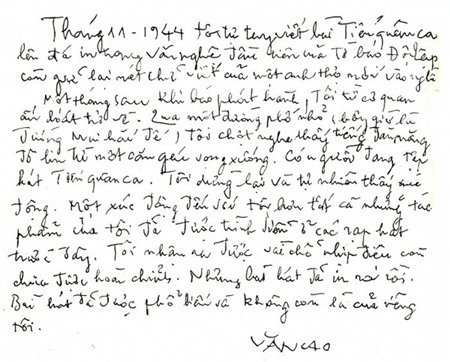 Tháng 11-1944 tôi tự tay viết bài Tiến quân ca
lên đá in trang Văn nghệ đầu tiên của tờ báo Độc Lập
còn giữ lại nét chữ viết của một anh thợ mới vào nghề
Một tháng sau khi báo phát hành, Tôi từ cơ quan
ấn loát trở về. Qua một đường phố nhỏ (bây giờ là
đường Mai hắc Đế), tôi chợt nghe thấy tiếng đàn măng
đô lin từ một căn gác vọng xuống. Có người đang tập
hát Tiến quân ca. Tôi dừng lại và tự nhiên thấy xúc
động. Một xúc động đến với tôi hơn tất cả những tác
phẩm của tôi đã được trình diễn ở các rạp hát
trước đây. Tôi nhận ra được vài chỗ nhịp điệu còn
chưa được hoàn chỉnh. Nhưng bài hát đã in ra rồi.
Bài hát đã được phổ biến và không còn là của riêng
tôi.
VĂN CAO